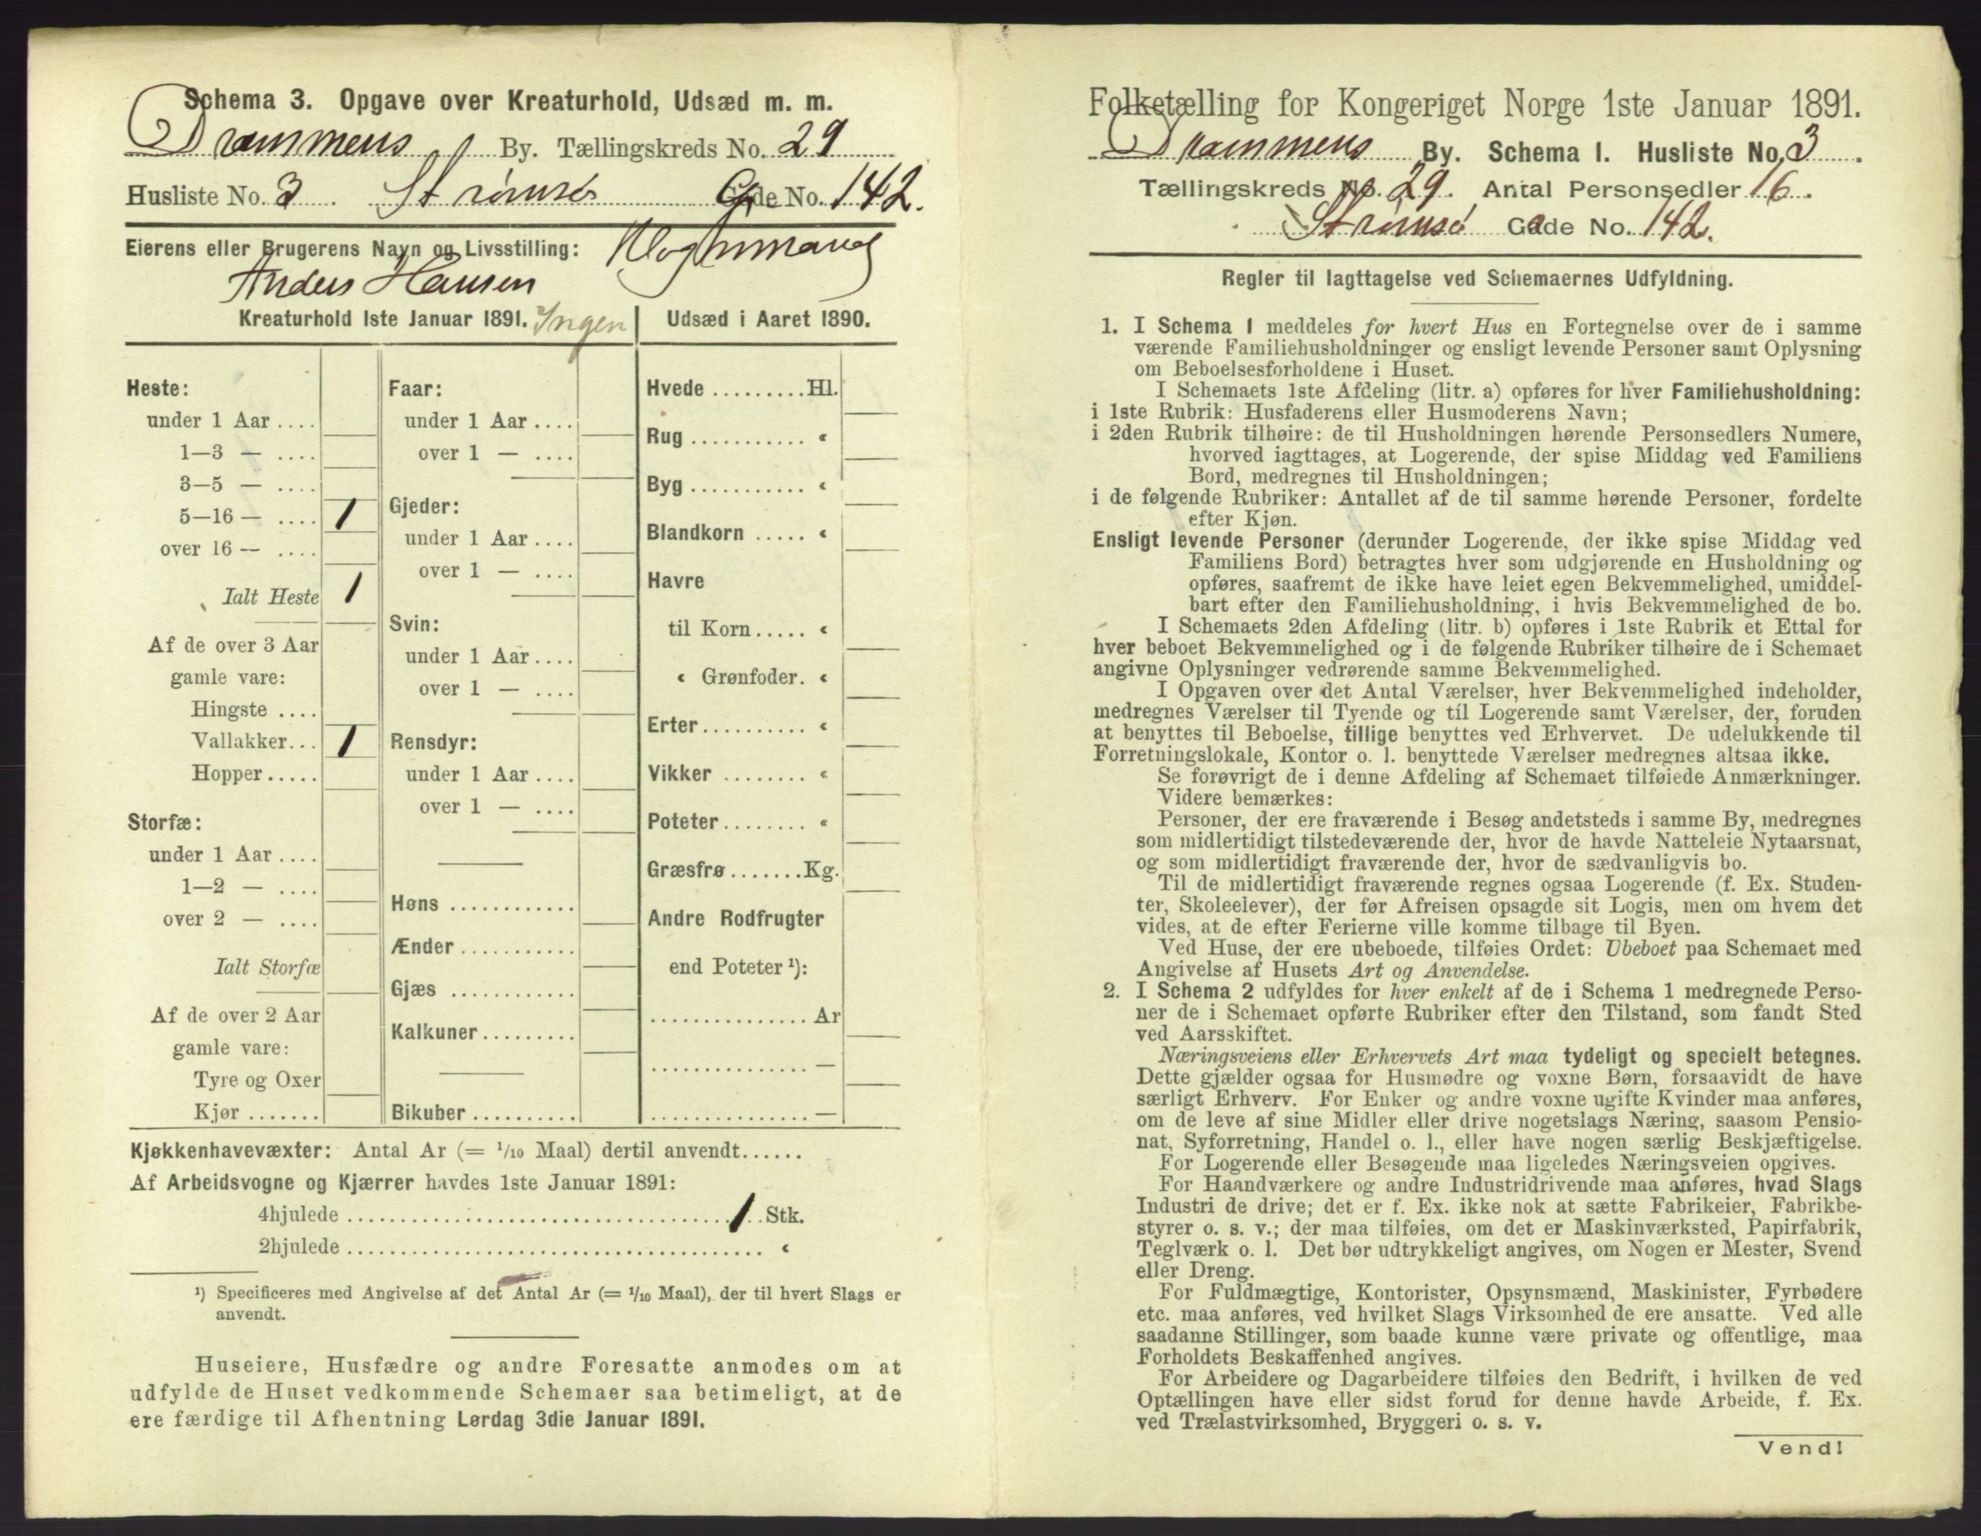 Schema 3. Opgave over Kreaturhold, Udsæd m. m.
Drammens By. Tællingskreds No. 29
Husliste No. 3 Strømsø Gade No. 142.
Eierens eller Brugerens Navn og Livsstilling: Vognmand
Anders Hansen
Kreaturhold 1ste Januar 1891. Ingen
Heste:
under 1 Aar ....
1—3 — ....
3—5 — ....
5—16 — .... 1
over 16 — ....
Ialt Heste 1
Af de over 3 Aar
gamle vare:
Hingste ....
Vallakker... 1
Hopper.....
Storfæ:
under 1 Aar ....
1—2 — ....
over 2 — ....
Ialt Storfæ
Af de over 2 Aar
gamle vare:
Tyre og Oxer
Kjør .......
Faar:
under 1 Aar ....
over 1 — ....
Gjeder:
under 1 Aar ....
over 1 — ....
Svin:
under 1 Aar ....
over 1 — ....
Rensdyr:
under 1 Aar ....
over 1 — ....
Høns ............
Ænder...........
Gjæs ............
Kalkuner.........
Bikuber ..........
Udsæd i Aaret 1890.
Hvede .........Hl.
Rug ........... «
Byg ........... «
Blandkorn ..... «
Havre
til Korn..... «
« Grønfoder. «
Erter.......... «
Vikker ........ «
Poteter........ «
Græsfrø.......Kg.
Andre Rodfrugter
end Poteter ¹):
............... Ar
............... —
............... —
Kjøkkenhavevæxter: Antal Ar (= 1/10 Maal) dertil anvendt......
Af Arbeidsvogne og Kjærrer havdes 1ste Januar 1891:
4hjulede .................................. 1 Stk.
2hjulede ..................................... «
¹) Specificeres med Angivelse af det Antal Ar (= 1/10 Maal), der til hvert Slags er
anvendt.
Huseiere, Husfædre og andre Foresatte anmodes om at
udfylde de Huset vedkommende Schemaer saa betimeligt, at de
ere færdige til Afhentning Lørdag 3die Januar 1891.
Folketælling for Kongeriget Norge 1ste Januar 1891.
Drammens By. Schema 1. Husliste No. 3.
Tællingskreds No. 29. Antal Personsedler 16.
Strømsø Gade No. 142.
Regler til Iagttagelse ved Schemaernes Udfyldning.
1. I Schema 1 meddeles for hvert Hus en Fortegnelse over de i samme
værende Familiehusholdninger og ensligt levende Personer samt Oplysning
om Beboelsesforholdene i Huset.
I Schemaets 1ste Afdeling (litr. a) opføres for hver Familiehusholdning:
i 1ste Rubrik: Husfaderens eller Husmoderens Navn;
i 2den Rubrik tilhøire: de til Husholdningen hørende Personsedlers Numere,
hvorved iagttages, at Logerende, der spise Middag ved Familiens
Bord, medregnes til Husholdningen;
i de følgende Rubriker: Antallet af de til samme hørende Personer, fordelte
efter Kjøn.
Ensligt levende Personer (derunder Logerende, der ikke spise Middag ved
Familiens Bord) betragtes hver som udgjørende en Husholdning og
opføres, saafremt de ikke have leiet egen Bekvemmelighed, umiddel-
bart efter den Familiehusholdning, i hvis Bekvemmelighed de bo.
I Schemaets 2den Afdeling (litr. b) opføres i 1ste Rubrik et Ettal for
hver beboet Bekvemmelighed og i de følgende Rubriker tilhøire de i Schemaet
angivne Oplysninger vedrørende samme Bekvemmelighed.
I Opgaven over det Antal Værelser, hver Bekvemmelighed indeholder,
medregnes Værelser til Tyende og til Logerende samt Værelser, der, foruden
at benyttes til Beboelse, tillige benyttes ved Erhvervet. De udelukkende til
Forretningslokale, Kontor o. l. benyttede Værelser medregnes altsaa ikke.
Se forøvrigt de i denne Afdeling af Schemaet tilføiede Anmærkninger.
Videre bemærkes:
Personer, der ere fraværende i Besøg andetsteds i samme By, medregnes
som midlertidigt tilstedeværende der, hvor de havde Natteleie Nytaarsnat,
og som midlertidigt fraværende der, hvor de sædvanligvis bo.
Til de midlertidigt fraværende regnes ogsaa Logerende (f. Ex. Studen-
ter, Skoleelever), der før Afreisen opsagde sit Logis, men om hvem det
vides, at de efter Ferierne ville komme tilbage til Byen.
Ved Huse, der ere ubeboede, tilføies Ordet: Ubeboet paa Schemaet med
Angivelse af Husets Art og Anvendelse.
2. I Schema 2 udfyldes for hver enkelt af de i Schema 1 medregnede Perso-
ner de i Schemaet opførte Rubriker efter den Tilstand, som fandt Sted
ved Aarsskiftet.
Næringsveiens eller Erhvervets Art maa tydeligt og specielt betegnes.
Dette gjælder ogsaa for Husmødre og voxne Børn, forsaavidt de have
særligt Erhverv. For Enker og andre voxne ugifte Kvinder maa anføres,
om de leve af sine Midler eller drive nogetslags Næring, saasom Pensio-
nat, Syforretning, Handel o. l., eller have nogen særlig Beskjæftigelse.
For Logerende eller Besøgende maa ligeledes Næringsveien opgives.
For Haandværkere og andre Industridrivende maa anføres, hvad Slags
Industri de drive; det er f. Ex. ikke nok at sætte Fabrikeier, Fabrikbe-
styrer o. s. v.; der maa tilføies, om det er Maskinværksted, Papirfabrik,
Teglværk o. l. Det bør udtrykkeligt angives, om Nogen er Mester, Svend
eller Dreng.
For Fuldmægtige, Kontorister, Opsynsmænd, Maskinister, Fyrbødere
etc. maa anføres, ved hvilket Slags Virksomhed de ere ansatte. Ved alle
saadanne Stillinger, som baade kunne være private og offentlige, maa
Forholdets Beskaffenhed angives.
For Arbeidere og Dagarbeidere tilføies den Bedrift, i hvilken de ved
Optællingen have eller sidst forud for denne havde Arbeide, f. Ex.
ved Trælastvirksomhed, Bryggeri o. s. v.
Vend!